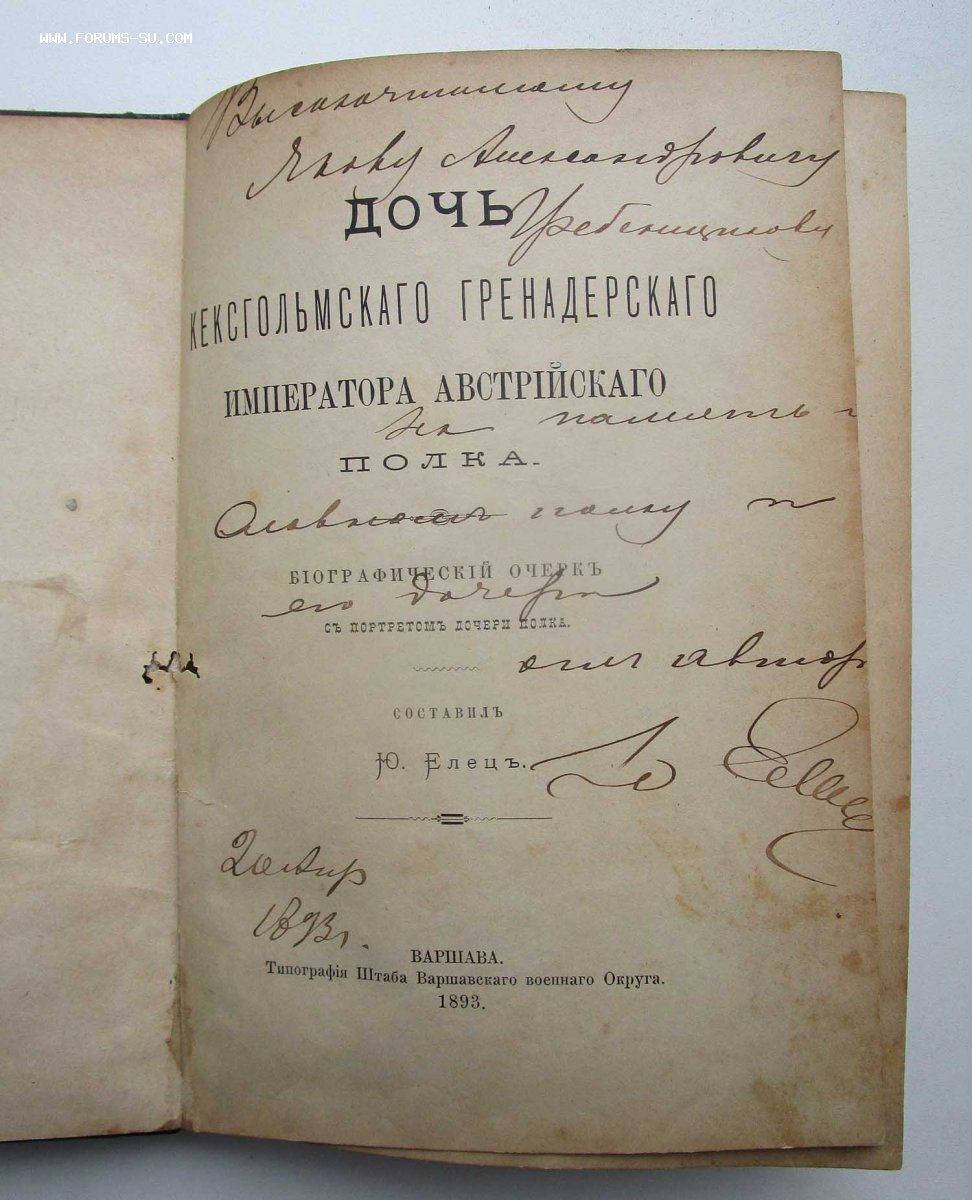 WWW.FORUMS-SU.COM
Высокочтимому
Якову Александровичу
ДОЧЬ
Гребенщикову
КЕКСГОЛЬМСКАГО ГРЕНАДЕРСКАГО
ИМПЕРАТОРА АВСТРІЙСКАГО
на память
ПОЛКА.
полку и
БІОГРАФИЧЕСКІЙ ОЧЕРКЪ
его дочери
СЪ ПОРТРЕТОМЪ ДОЧЕРИ ПОЛКА.
отъ автор
СОСТАВИЛЪ
Ю. Елецъ.
Ю Елец
1893г.
ВАРШАВА.
Типографія Штаба Варшавскаго военнаго Округа.
1893.